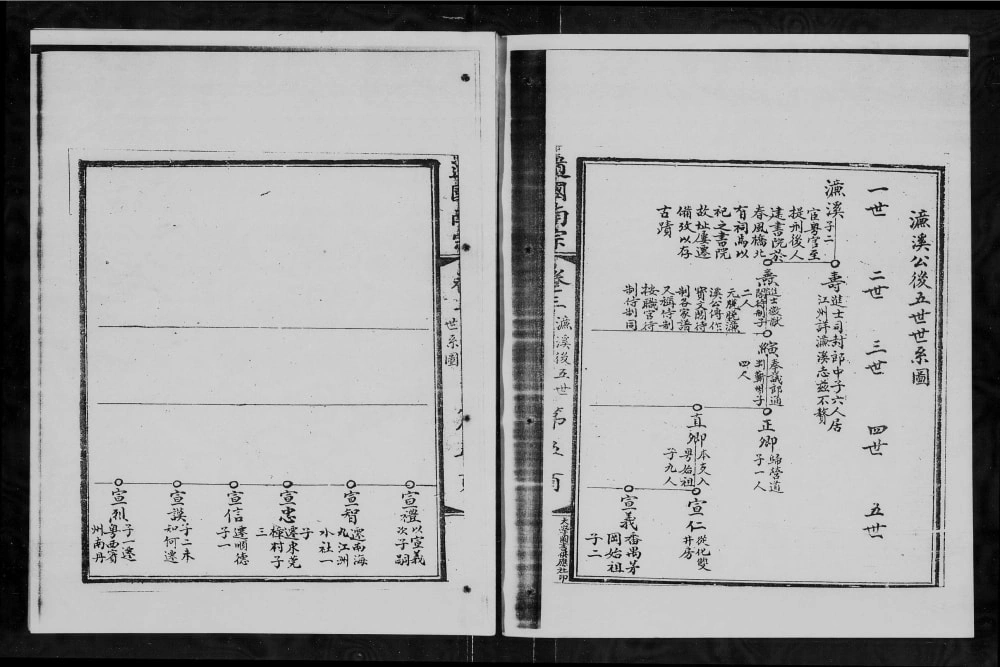 濂溪公後五世世系圖
一世 二世 三世 四世 五世
濂溪
子二
宦粵官至
提刑後人
建書院於
春風橋北
有祠焉以
祀之書院
故址屢遷
備攷以存
古蹟
壽
進士司封郎中子六人居
江州詳濂溪志茲不贅
燾
進士徽猷
閣待制子
二人
元脫脫濂
溪公傳作
寶文閣待
制各家譜
又稱待制
按職官待
制侍制同
縯
奉議郎通
判蘄州子
四人
正卿
歸營道
子一人
直卿
本支入
粵始祖
子九人
宣仁
從化雙
井房
宣義
番禺茅
岡始祖
子二
大學圖書供應社印
國南宗
卷二
濂溪後五世
國南宗
世系圖
宣禮
以宣義
次子嗣
宣智
遷南海
九江洲
水社一
子
宣忠
遷東莞
樟村子
三
宣信
遷順德
子一
宣諆
子二未
知何遷
宣
子一遷
粵西賓
州南丹